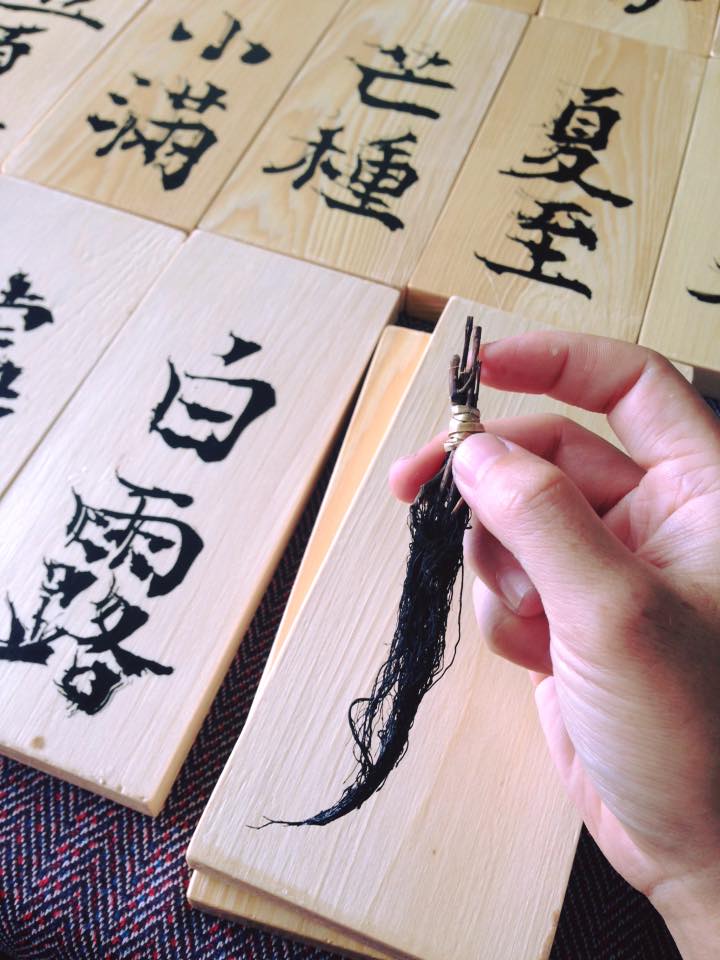 小滿
芒種
夏至
白露